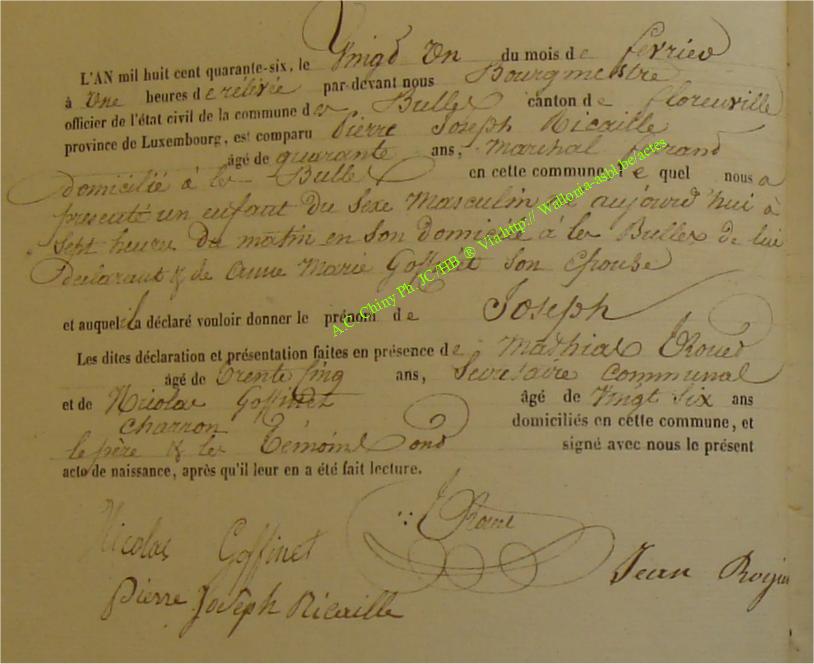 L'AN mil huit cent quarante-six, le Vingt un du mois de fevrier
à une heures de relévée par-devant nous Bourgmestre
officier de l'état civil de la commune des Bulles canton de florenville
province de Luxembourg, est comparu Pierre Joseph Ricaille
âgé de quarante ans, Marchal ferand
domicilié à les Bulles en cette commune le quel nous a
presenté un enfant du sexe Masculin né aujourd'hui à
sept heures du matin en son domicile à les Bulles de lui
declarant & de Anne Marie Goffinet son épouse
et auquel il a déclaré vouloir donner le prénom de Joseph
Les dites déclaration et présentation faites en présence de Mathias
âgé de trente sinq ans, Secretaire communal
et de Nicolas Goffinet âgé de Vingt six ans
charron domiciliés en cette commune, et
le père & les témoins ond signé avec nous le présent
acte de naissance, après qu'il leur en a été fait lecture.
Nicolas Goffinet
Jean
Pierre Joseph Ricaille
A.C. Chiny Ph. JC/HB ® Via http:// Wallonia-asbl.be/actes